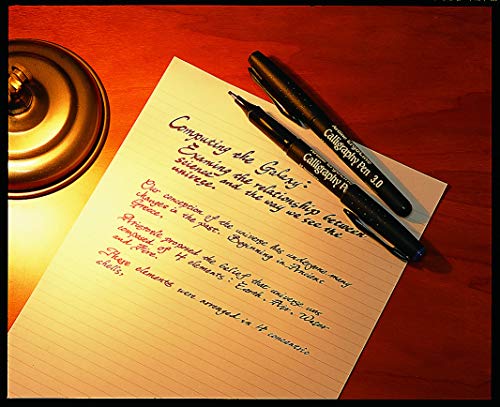 Computing the Galaxy:
Examing the relationship between
science and the way we see the
universe
Our conception of the universe has undergone many
changes in the past. Beginning in Ancient
Greece.
Aristotle proposed the belief that universe was
composed of 4 elements: Earth. Air. Water
and Fire!
These elements were arranged in 4 concentric
shells,
Calligraphy Pen 3.0
Calligraphy P